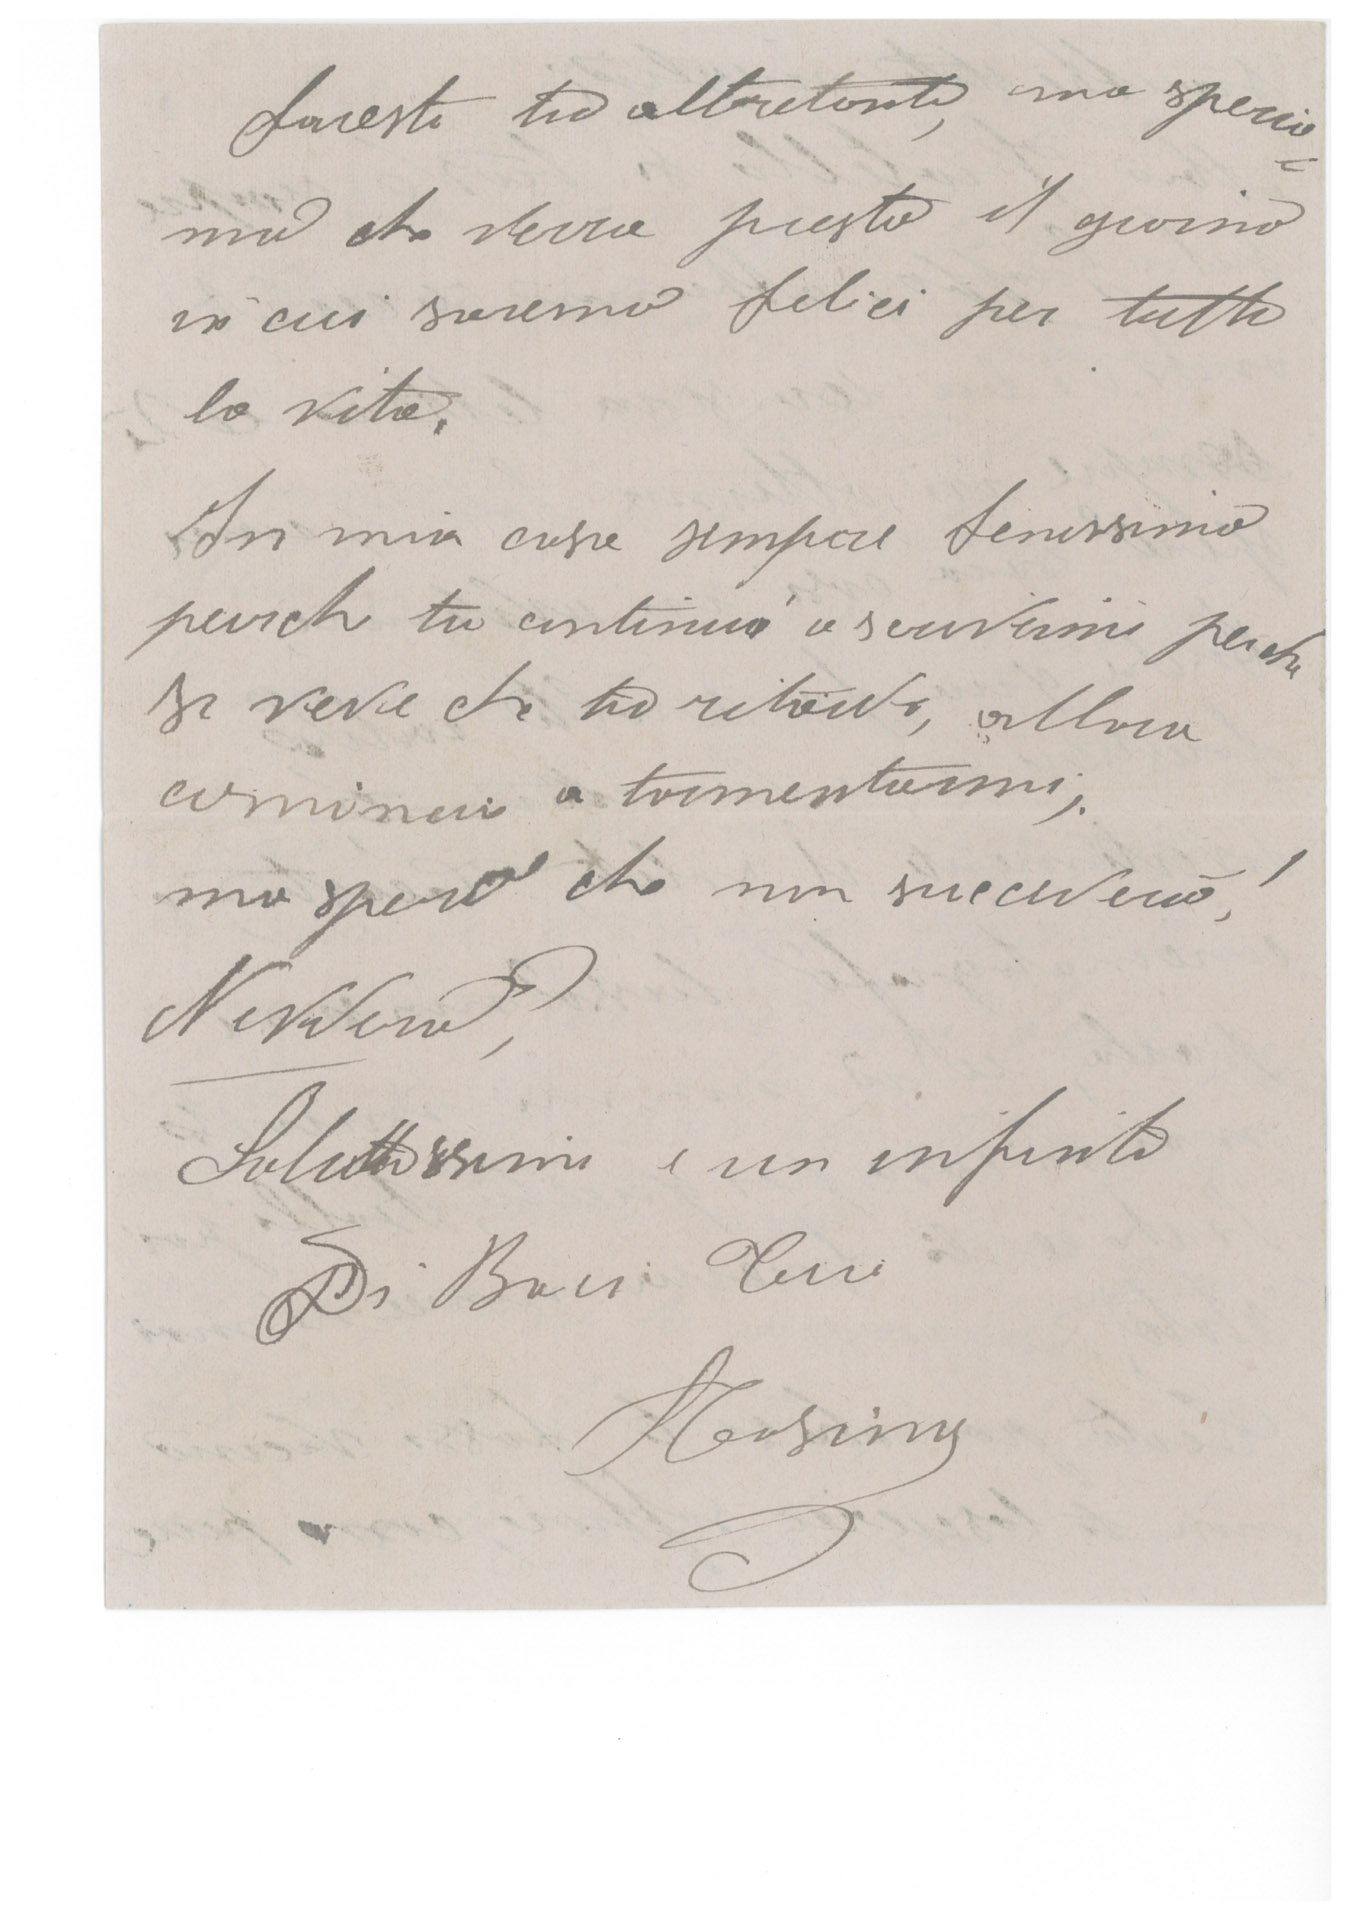 faresti tu altretanto, ma speria=
mo che verra presto il giorno
in cui saremo felici per tutta
la vita.
In mia casa sempre benissimo
perche tu continui a scrivermi perche
se vede che tu ritardi, allora
cominciu a tormentarmi;
ma spero che non succedera,!
Nevvero?
Salutissimi e un infinito
Di Baci Tuo